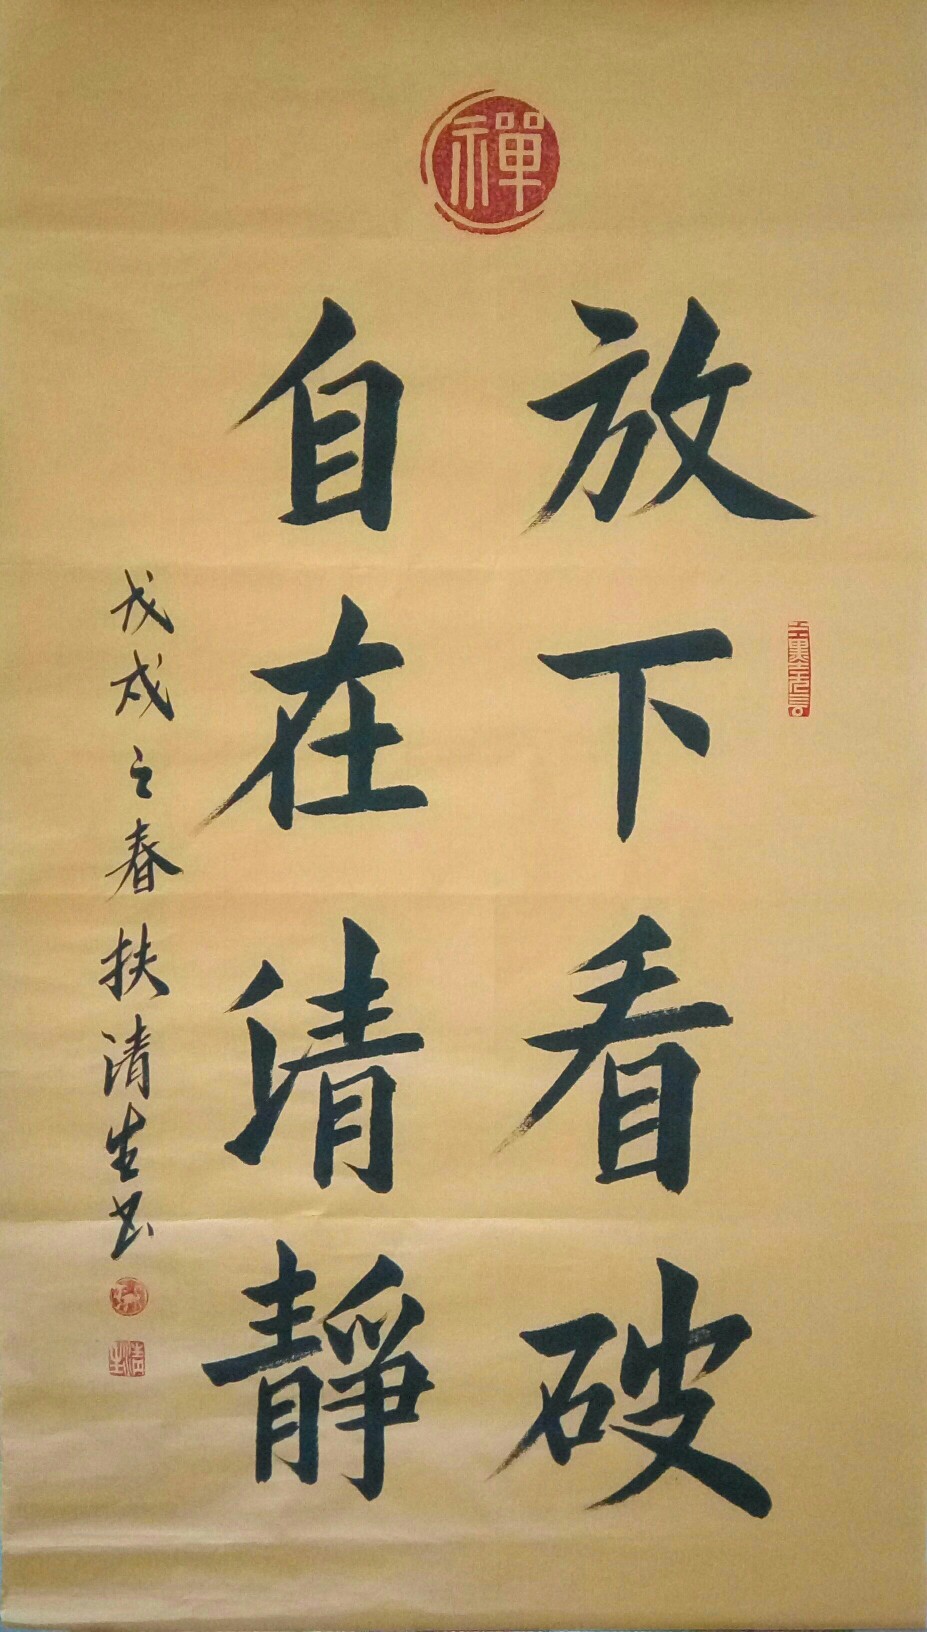 禪
放下看破
自在清靜
戊戌之春扶清生书
清生